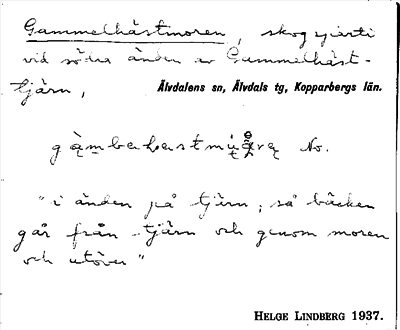 Gammelhästmoren, skogsparti
vid södra änden av Gammelhäst-
tjärn,
Älvdalens sn, Älvdals tg, Kopparbergs län.
No.
"i änden på tjärn, så bäcken
går från tjärn och genom moren
och utöver"
HELGE LINDBERG 1937.